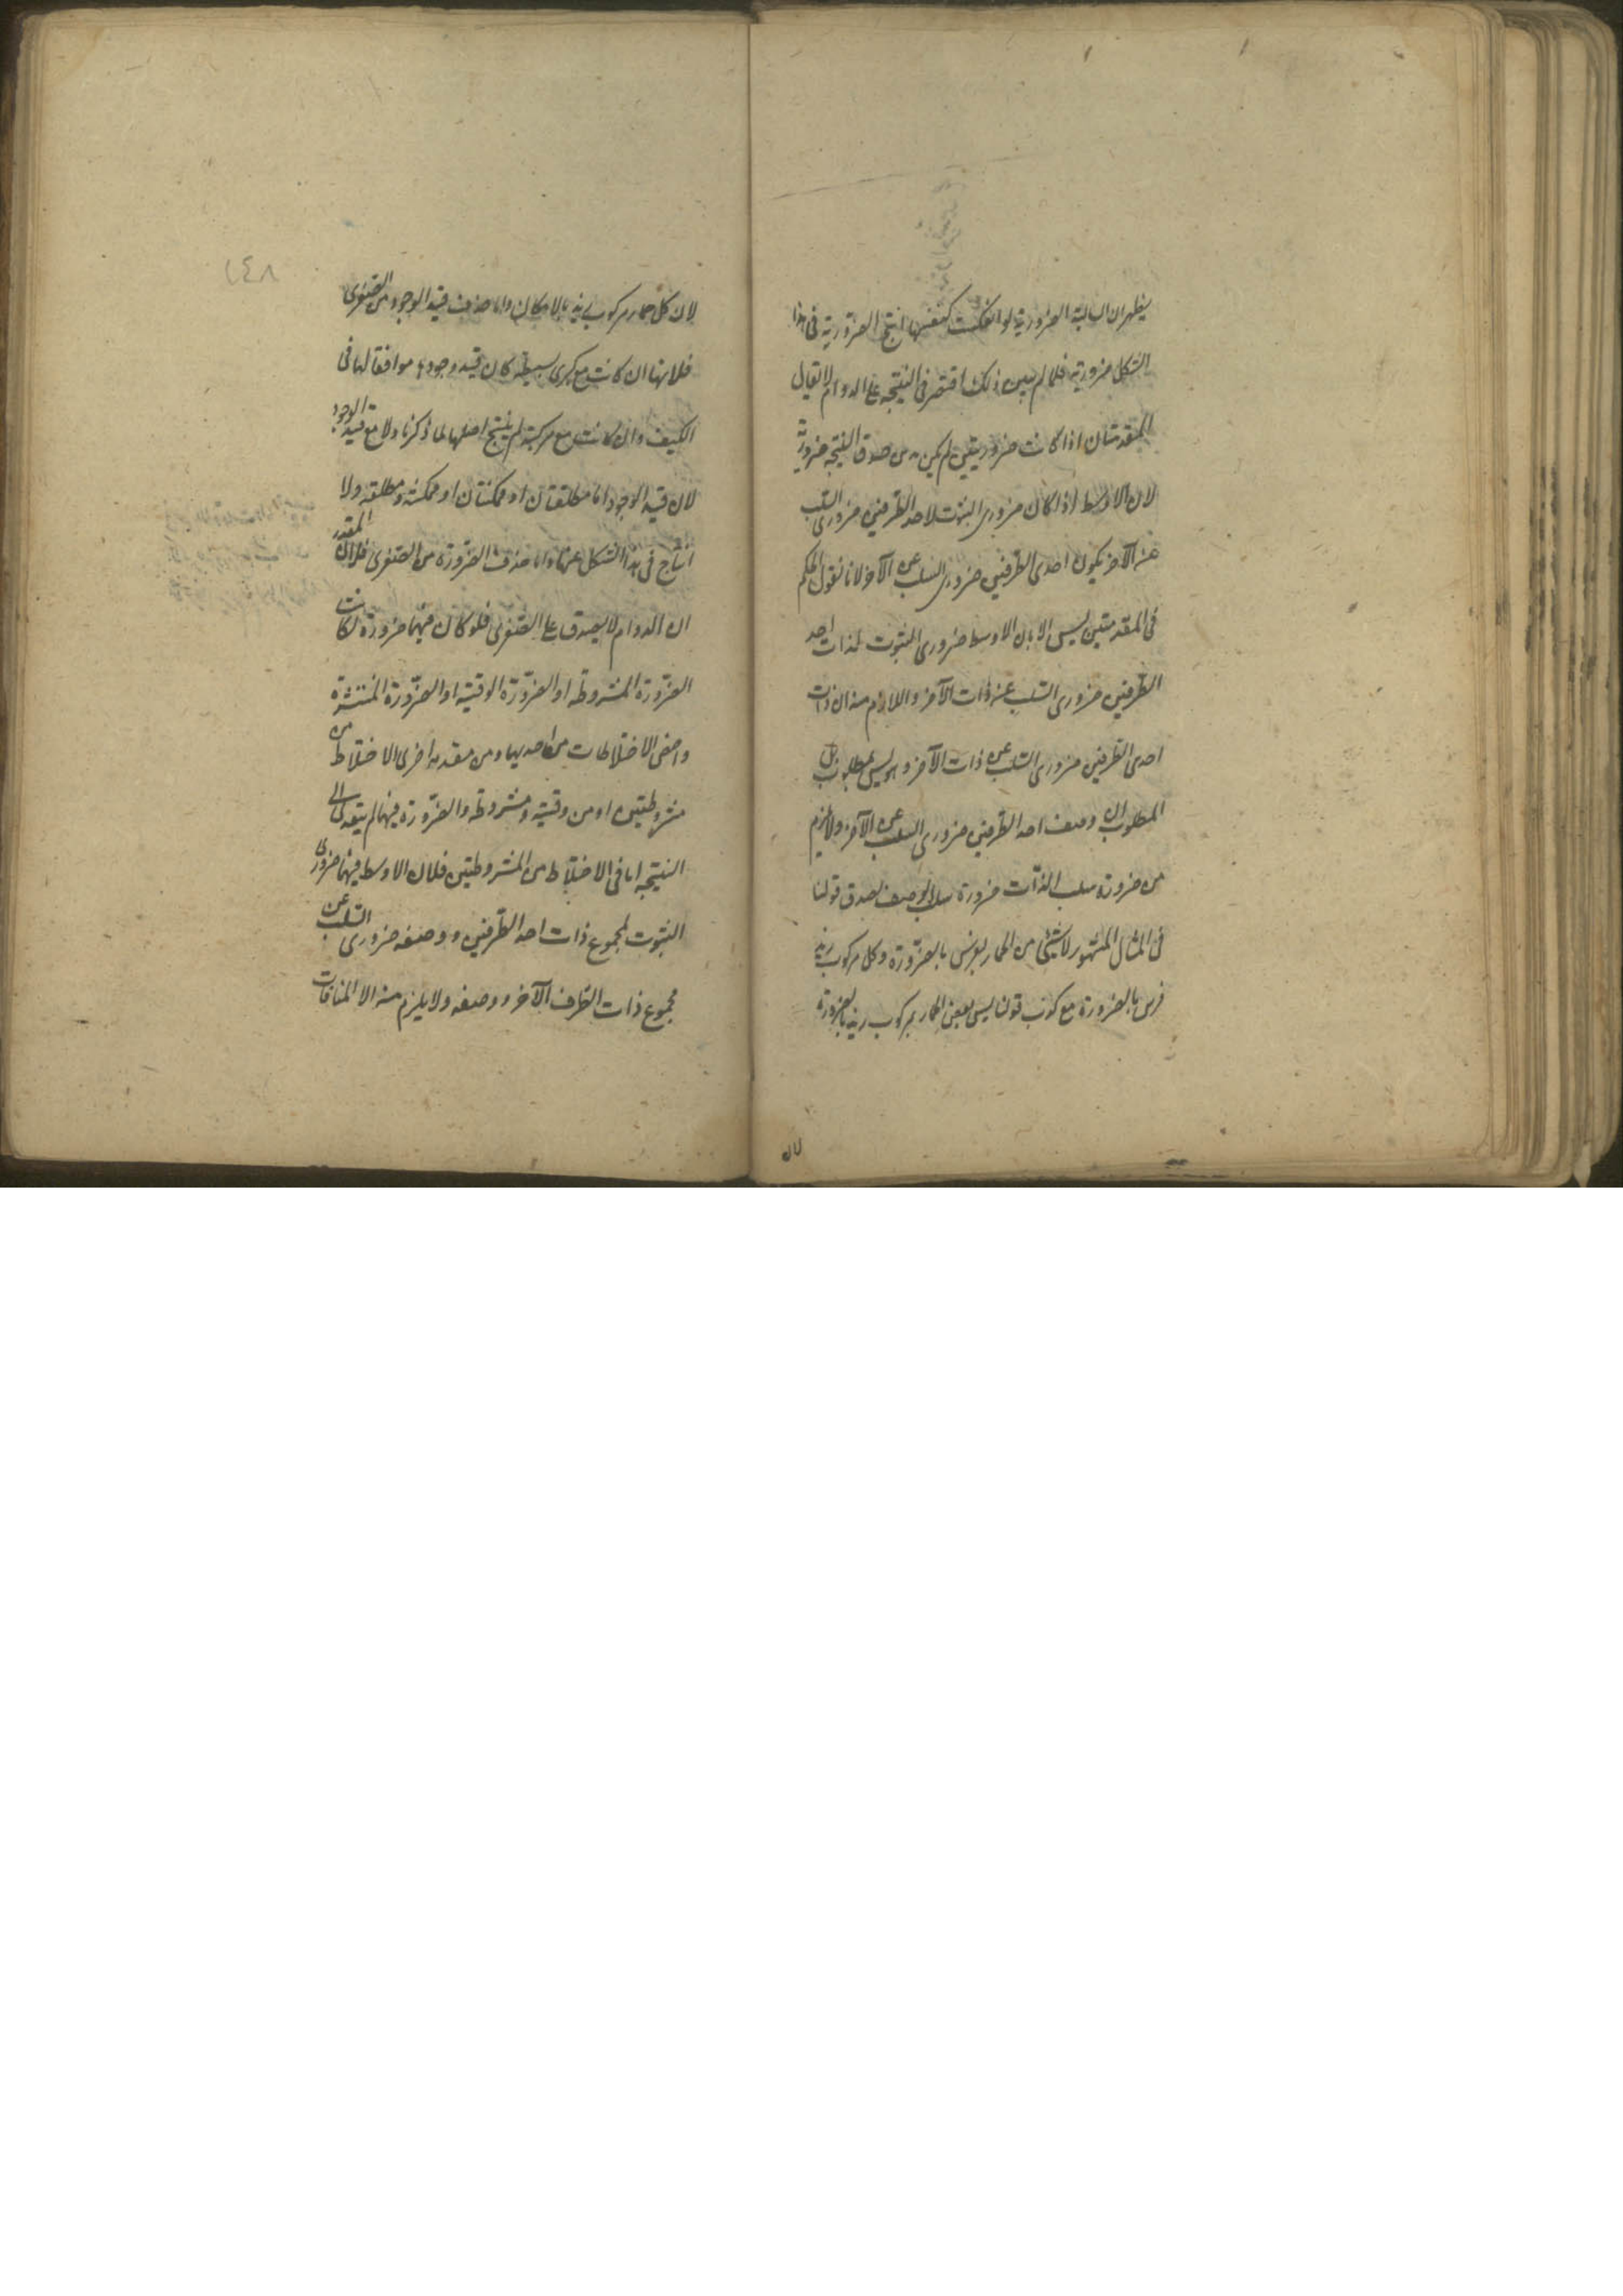 يظهر ان السالبة الضرورية لو انعكست كنفسها انتج الضرورية فى هذا
الشكل ضرورية فلما لم يبين ذلك اقتصر فى النتيجة على الدوام لا يقال
المقدمتان اذا كانت ضروريتين لم يكن بد من صدق النتيجة ضرورية
لان الاوسط اذا كان ضرورى الثبوت لاحد الطرفين ضرورى السلب
عن الآخر يكون احدى الطرفين ضرورى السلب عن الآخر لانا نقول الحكم
فى المقدمتين ليس الا بان الاوسط ضرورى الثبوت لذات احد
الطرفين ضرورى السلب عن ذات الآخر واللازم منه ان ذات
احدى الطرفين ضرورى السلب عن ذات الآخر وهو ليس بمطلوب بل
المطلوب ان وصف احد الطرفين ضرورى السلب عن الآخر ولا يلزم
من ضرورة سلب الذات ضرورة سلب الوصف لصدق قولنا
فى المثال المشهور لا شئ من الحمار بفرس بالضرورة وكل مركوب زيد
فرس بالضرورة مع كذب قولنا ليس بعض الحمار بمركوب زيد بالضرورة
لان كل حمار مركوب زيد بالامكان واما حذف قيد الوجود من الصغرى
فلانها ان كانت مع كبرى بسيطة كان قيد وجودها موافقا لها فى
الكيف وان كانت مع مركبة لم ينتج اصلها لما ذكرنا ولا مع قيد الوجود
لان قيد الوجود اما مطلقتان او ممكنتان او ممكنة ومطلقة ولا
انتاج فى هذا الشكل عنها واما حذف الضرورة من الصغرى فلان المقدر
ان الدوام لا يصدق على الصغرى فلو كان فيها ضرورة لكانت
الضرورة المشروطة او الضرورة الوقتية او الضرورة المنتشرة
واخص الاختلاطات من احديهما ومن مقدمة اخرى الاختلاط من
مشروطتين او من وقتية ومشروطة والضرورة فيهما لم يتعد الى
النتيجة اما فى الاختلاط من المشروطتين فلان الاوسط فيهما ضرورى
الثبوت لمجموع ذات احد الطرفين ووصفه ضرورى السلب عن
مجموع ذات الطرف الآخر ووصفه ولا يلزم منه الا المنافات
١٤٨